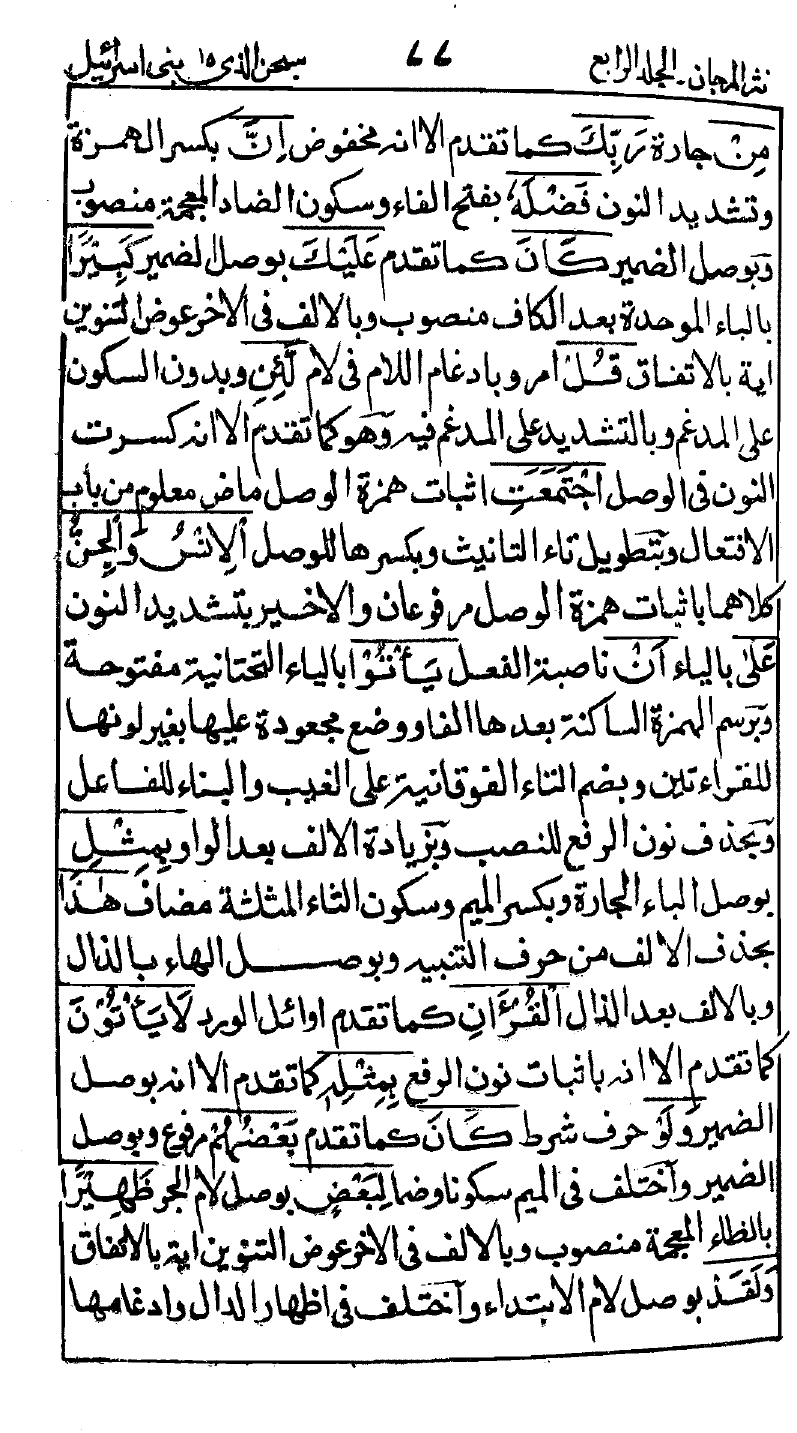 نثر المرجان۔ الجلد الرابع ٦٦ سبحن الذى ١٥ بنى اسرائيل
مِنْ جارة رَبِّكَ كما تقدم الا انه مخفوض اِنَّ بكسر الهمزة
وتشديد النون فَضْلَهٗ بفتح الفاء وسكون الضاد المعجمة منصوب
وبوصل الضمير كَانَ كما تقدم عَلَيْكَ بوصل الضمير كَبِيْرًا
بالباء الموحدة بعد الكاف منصوب وبالالف فى الاخر عوض التنوين
اية بالاتفاق قُلْ امر وبادغام اللام فى لام لَّئِنِ وبدون السكون
على المدغم وبالتشديد على المدغم فيه وهو كما تقدم الا انه كسرت
النون فى الوصل اجْتَمَعَتِ اثبات همزة الوصل ماض معلوم من باب
الافتعال وبتطويل تاء التانيث وبكسرها للوصل الْاِنْسُ وَالْجِنُّ
كلاهما باثبات همزة الوصل مرفوعان والاخير بتشديد النون
عَلٰى بالياء اَنْ ناصبة الفعل يَأْتُوْا بالياء التحتانية مفتوحة
وبرسم الهمزة الساكنة بعدها الفا ووضع مجعودة عليها بغير لونها
للقراءتين وبضم التاء الفوقانية على الغيب والبناء للفاعل
وبحذف نون الرفع للنصب وبزيادة الالف بعد الواو بِمِثْلِ
بوصل الباء الجارة وبكسر الميم وسكون الثاء المثلثة مضاف هٰذَا
بحذف الالف من حرف التنبيه وبوصل الهاء بالذال
وبالالف بعد الذال الْقُرْءَانِ كما تقدم اوائل الورد لَا يَأْتُوْنَ
كما تقدم الا انه باثبات نون الرفع بِمِثْلِهٖ كما تقدم الا انه بوصل
الضمير وَلَوْ حرف شرط كَانَ كما تقدم بَعْضُهُمْ مرفوع وبوصل
الضمير واختلف فى الميم سكونا وضما لِبَعْضٍ بوصل لام الجر ظَهِيْرًا
بالظاء المعجمة منصوب وبالالف فى الاخر عوض التنوين اية بالاتفاق
وَلَقَدْ بوصل لام الابتداء واختلف فى اظهار الدال وادغامها